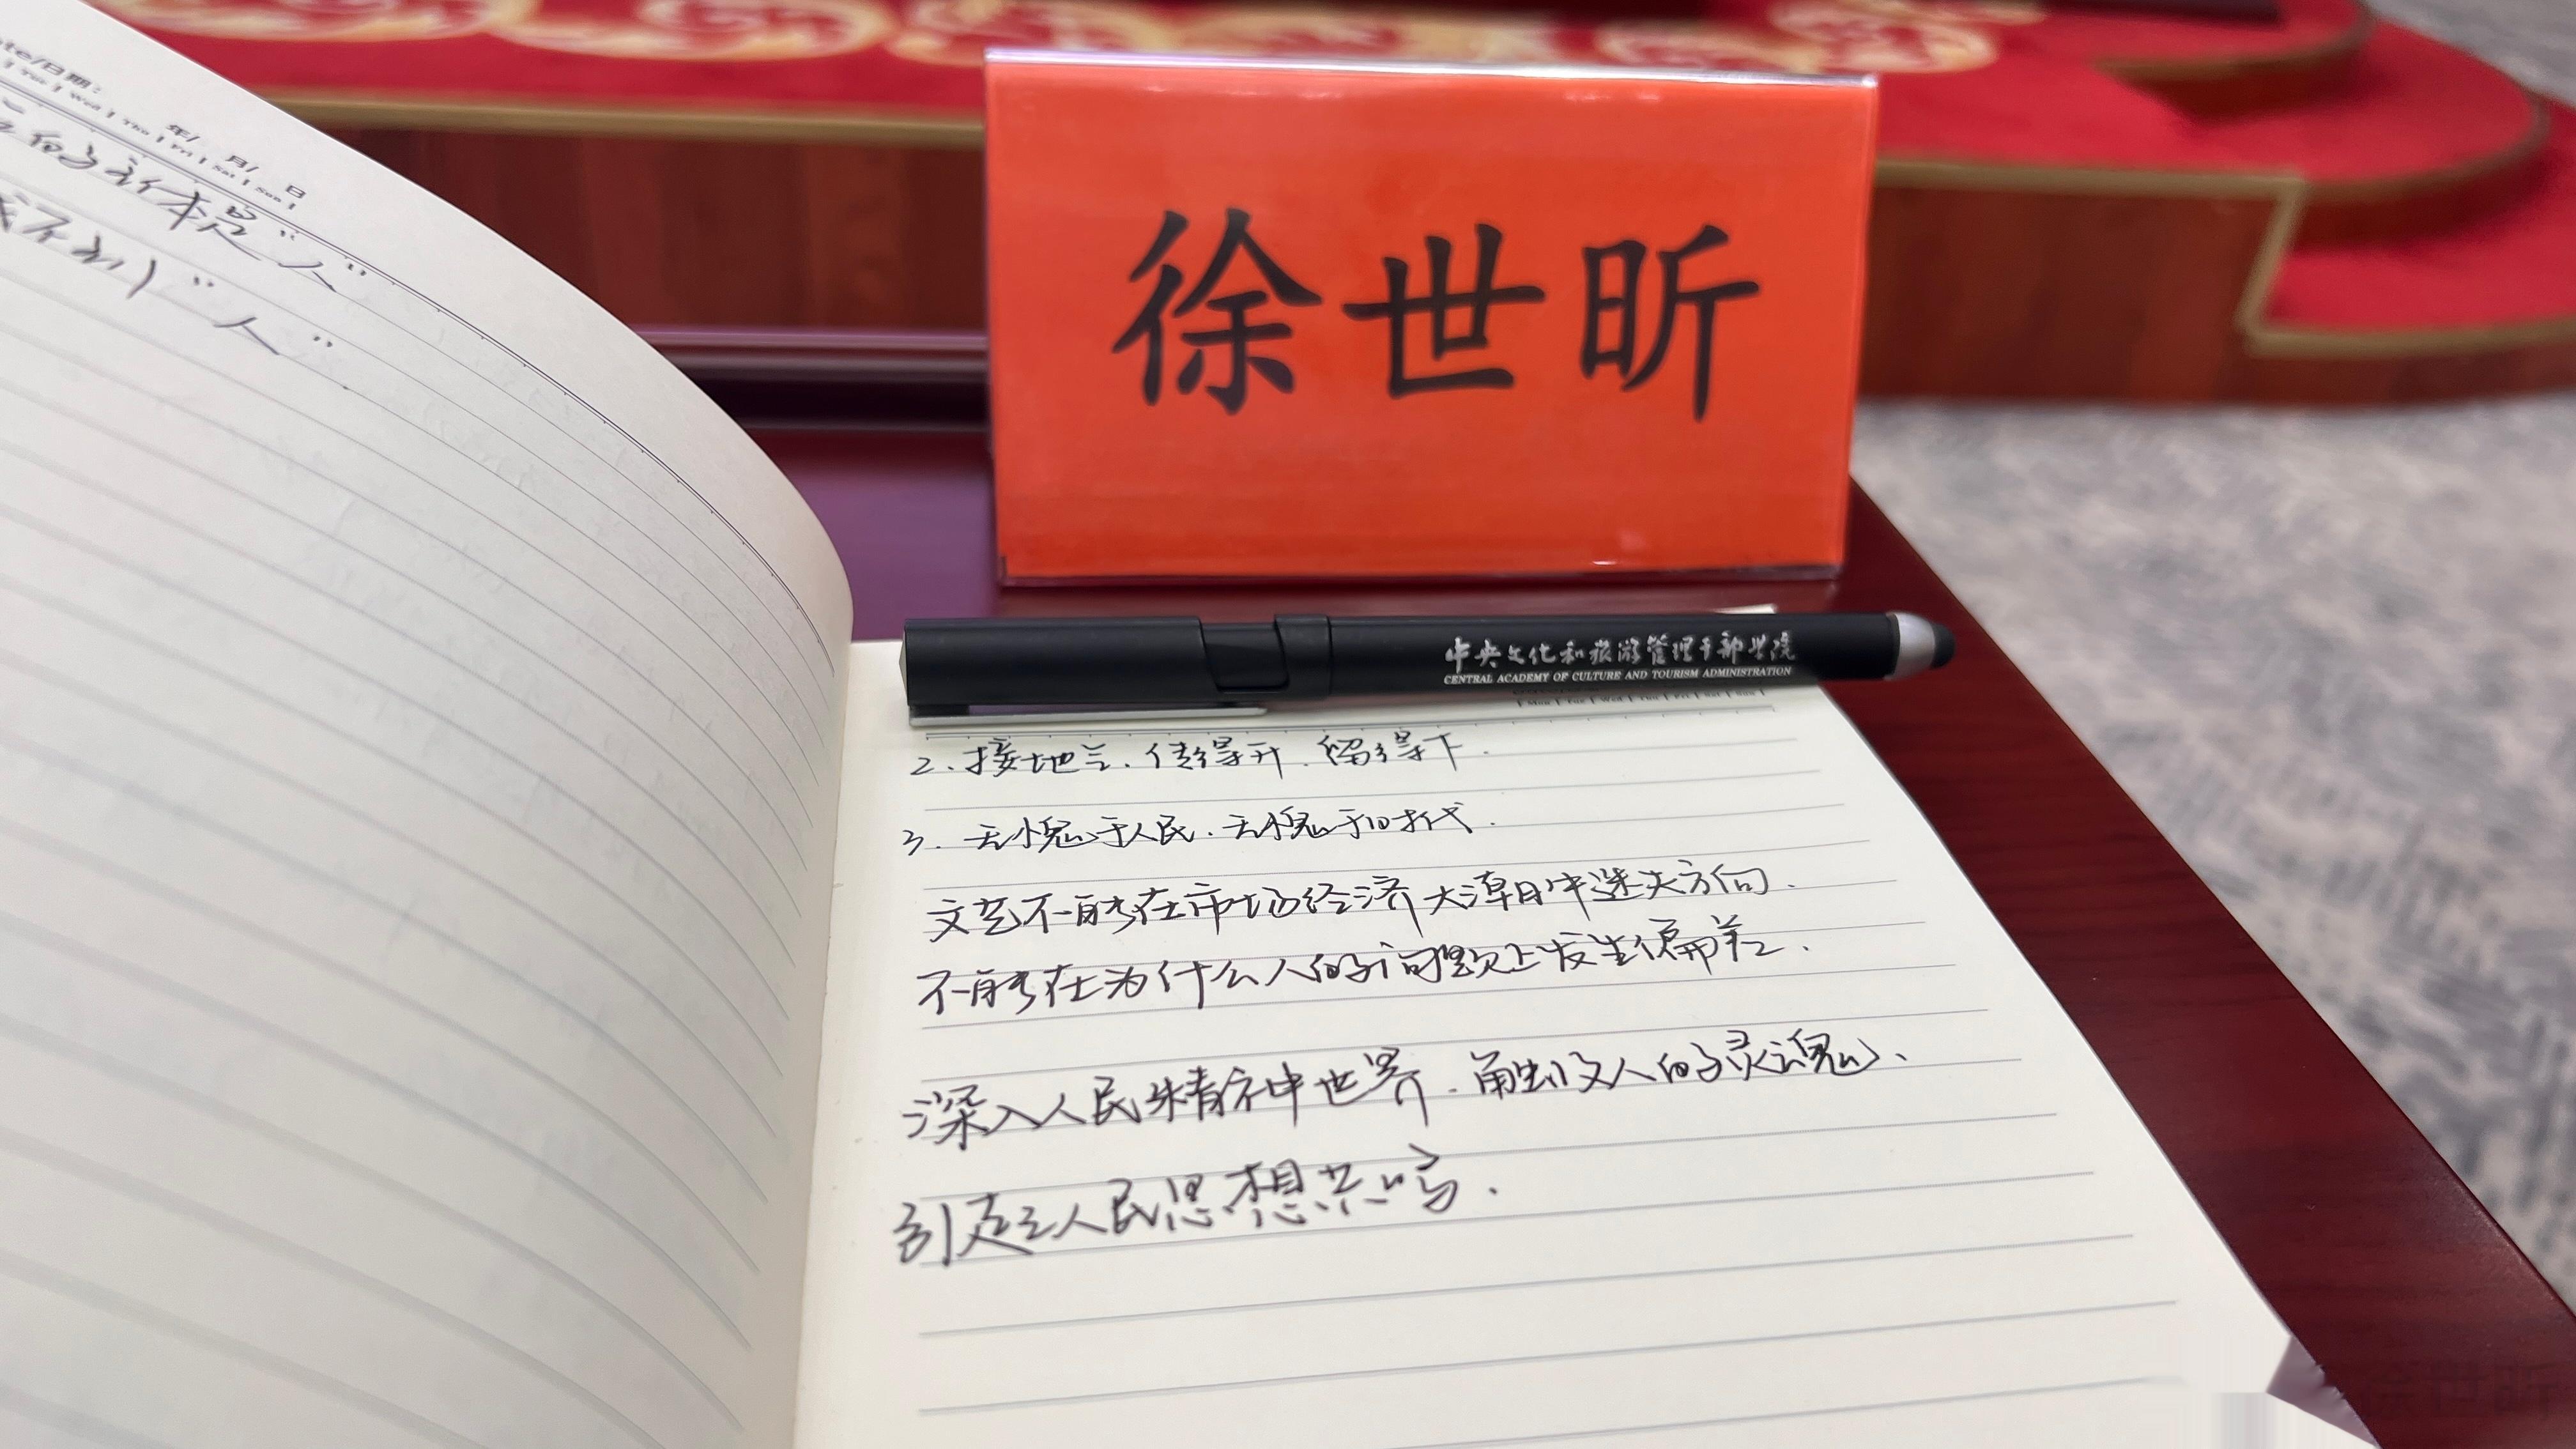 Date/日期: 年/ 月/ 日
Tue Wed Thu Fri Sat Sun
的主体是“人”
“人”
徐世昕
中央文化和旅游管理干部学院
CENTRAL ACADEMY OF CULTURE AND TOURISM ADMINISTRATION
Mon Tue Wed Thu Fri Sat Sun
2. 接地气. 传得开. 留得下.
3. 无愧于人民. 无愧于时代.
文艺不能在市场经济大潮中迷失方向.
不能在为什么人的问题上发生偏差.
深入人民精神世界. 触及人的灵魂、
引起人民思想共鸣.
徐世昕